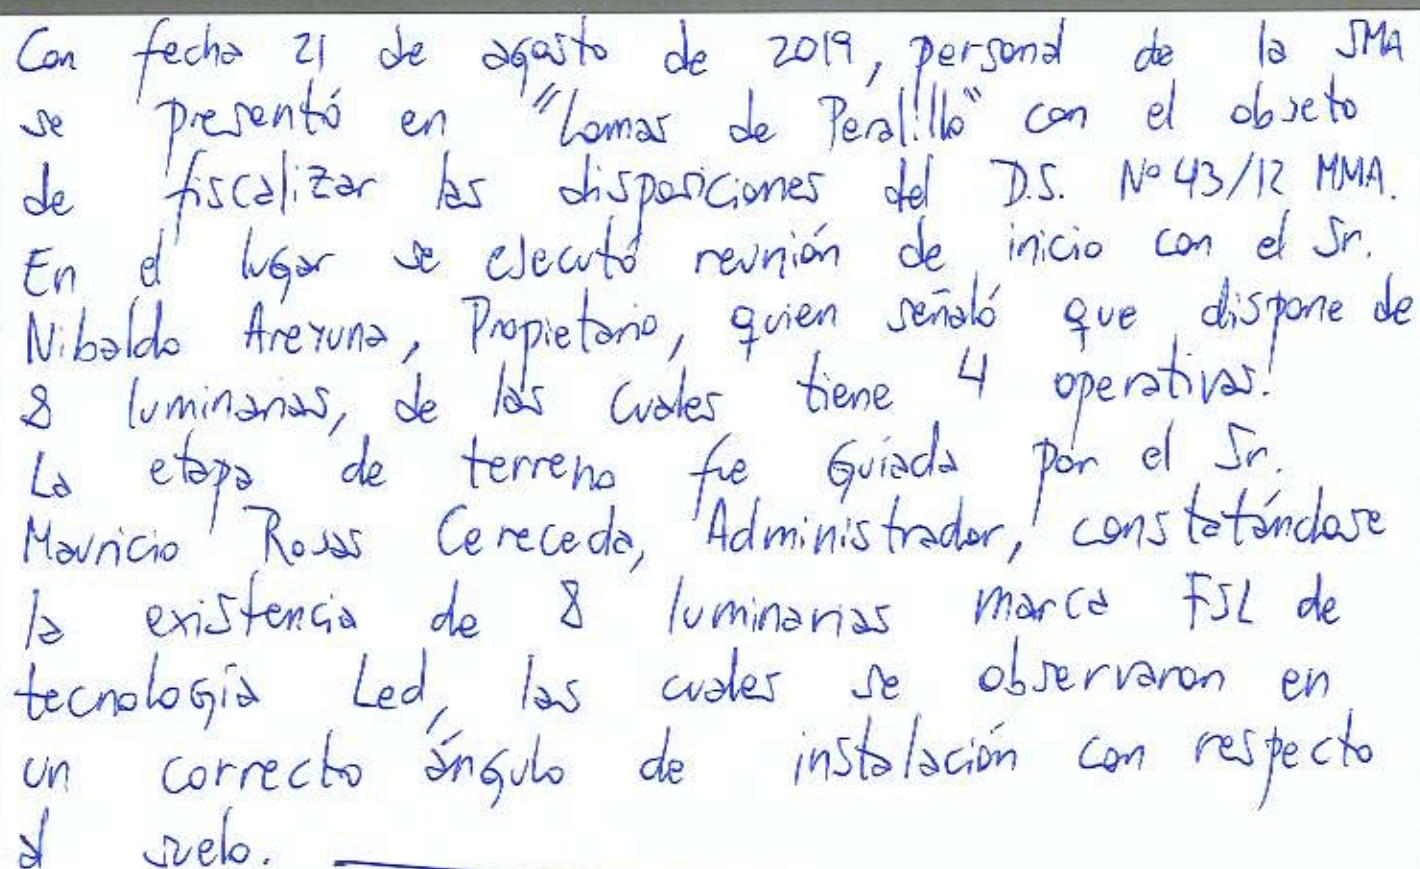 Con fecha 21 de agosto de 2019, personal de la SMA
se presentó en "Lomas de Peralillo" con el objeto
de fiscalizar las disposiciones del D.S. Nº 43/12 MMA.
En el lugar se ejecutó reunión de inicio con el Sr.
Nibaldo Areyuna, Propietario, quien señaló que dispone de
8 luminarias, de las cuales tiene 4 operativas.
La etapa de terreno fue guiada por el Sr.
Mauricio Rosas Cereceda, Administrador, constatándose
la existencia de 8 luminarias marca FSL de
tecnología Led, las cuales se observaron en
un correcto ángulo de instalación con respecto
al suelo.